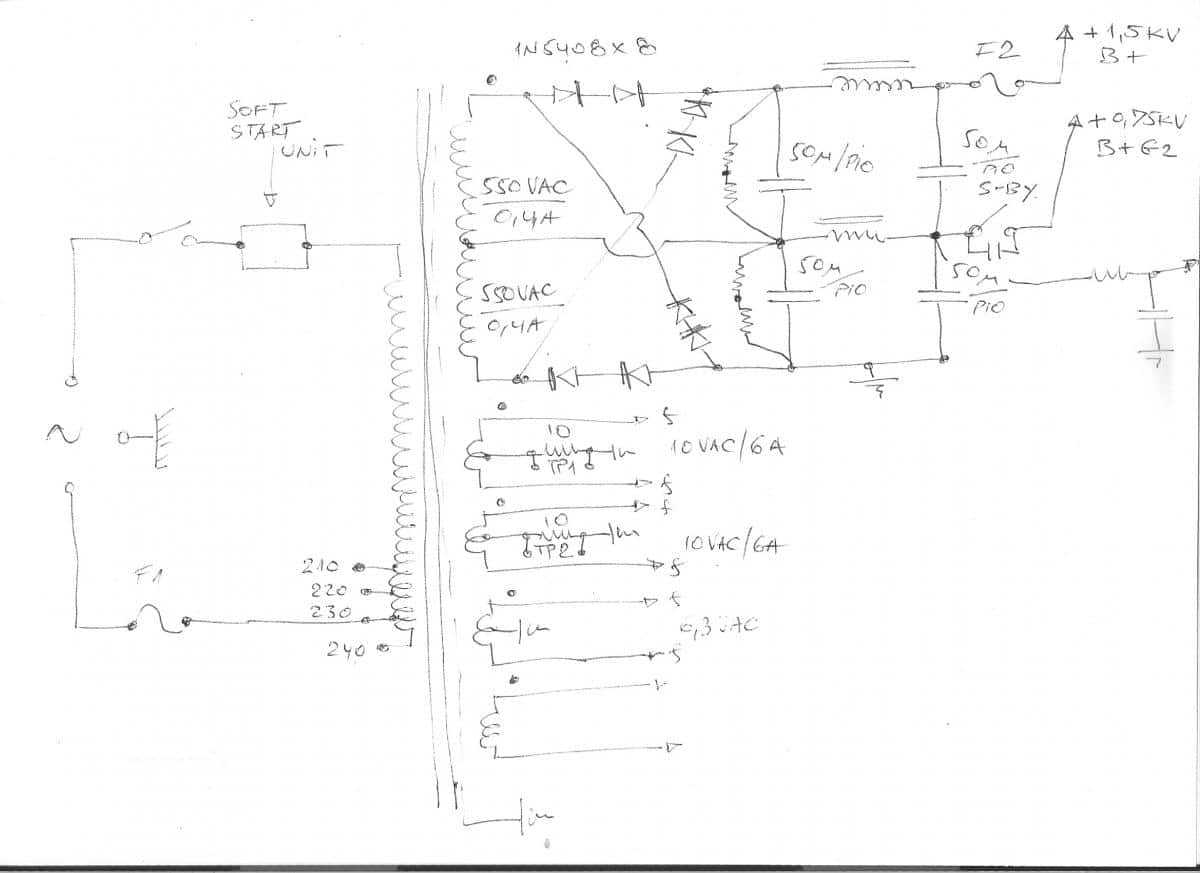 1N5408 x 8
F2
+1,5KV
B+
SOFT
START
UNIT
+0,75KV
B+G2
50µ/PiO
50µ
PIO
S-BY.
550VAC
0,4A
550VAC
0,4A
50µ
PIO
50µ
PiO
f
10
TP1
10VAC/6A
f
f
10
TP2
10VAC/6A
f
~
F1
210
220
230
240
f
6,3VAC
f